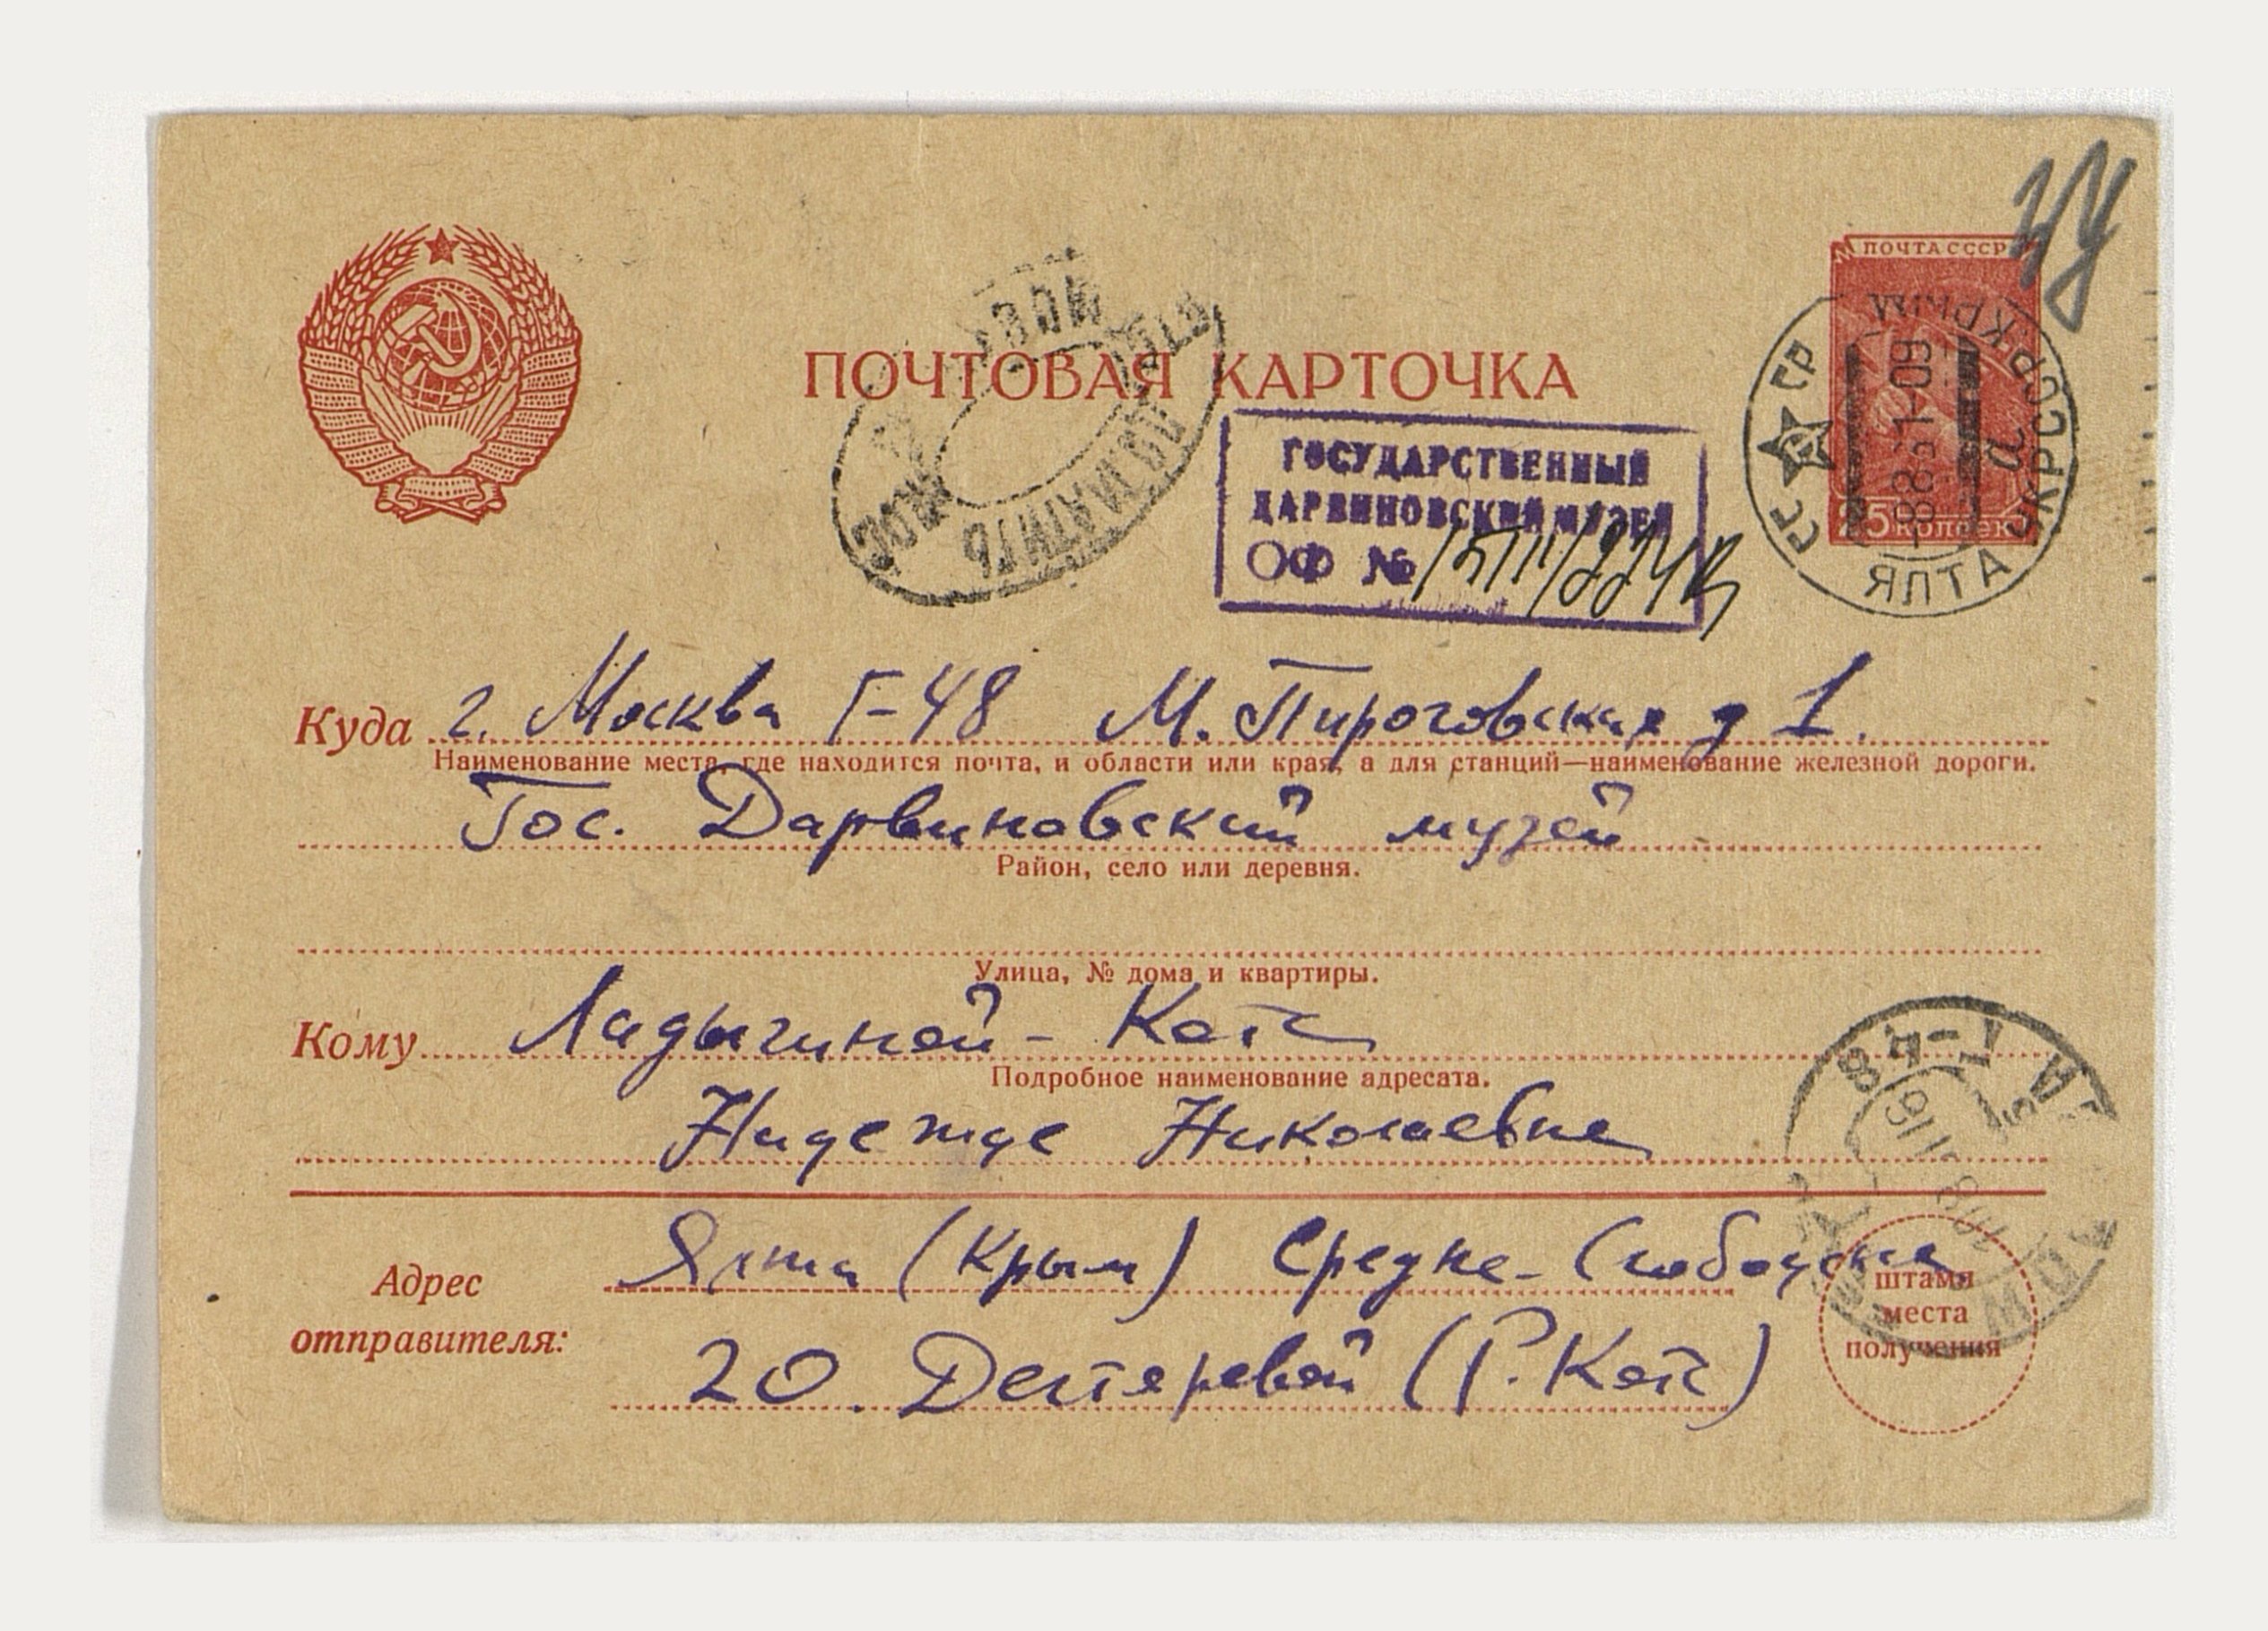 ПОЧТА СССР
25 копеек
ПОЧТОВАЯ КАРТОЧКА
ДОПЛАТИТЬ
СССР
УКР.ССР.КРЫМ
ЯЛТА
а
ГОСУДАРСТВЕННЫЙ
ДАРВИНОВСКИЙ МУЗЕЙ
ОФ №
Куда г. Москва Г-48 М. Пироговская д 1.
Наименование места, где находится почта, и области или края, а для станций—наименование железной дороги.
Гос. Дарвиновский музей
Район, село или деревня.
Улица, № дома и квартиры.
Кому Ладыгиной-Котс
Подробное наименование адресата.
Надежде Николаевне
Г-48
Адрес отправителя: Ялта (Крым) Средне-Слободская
20. Дегтяревой (Р. Котс)
штамп
места
получения